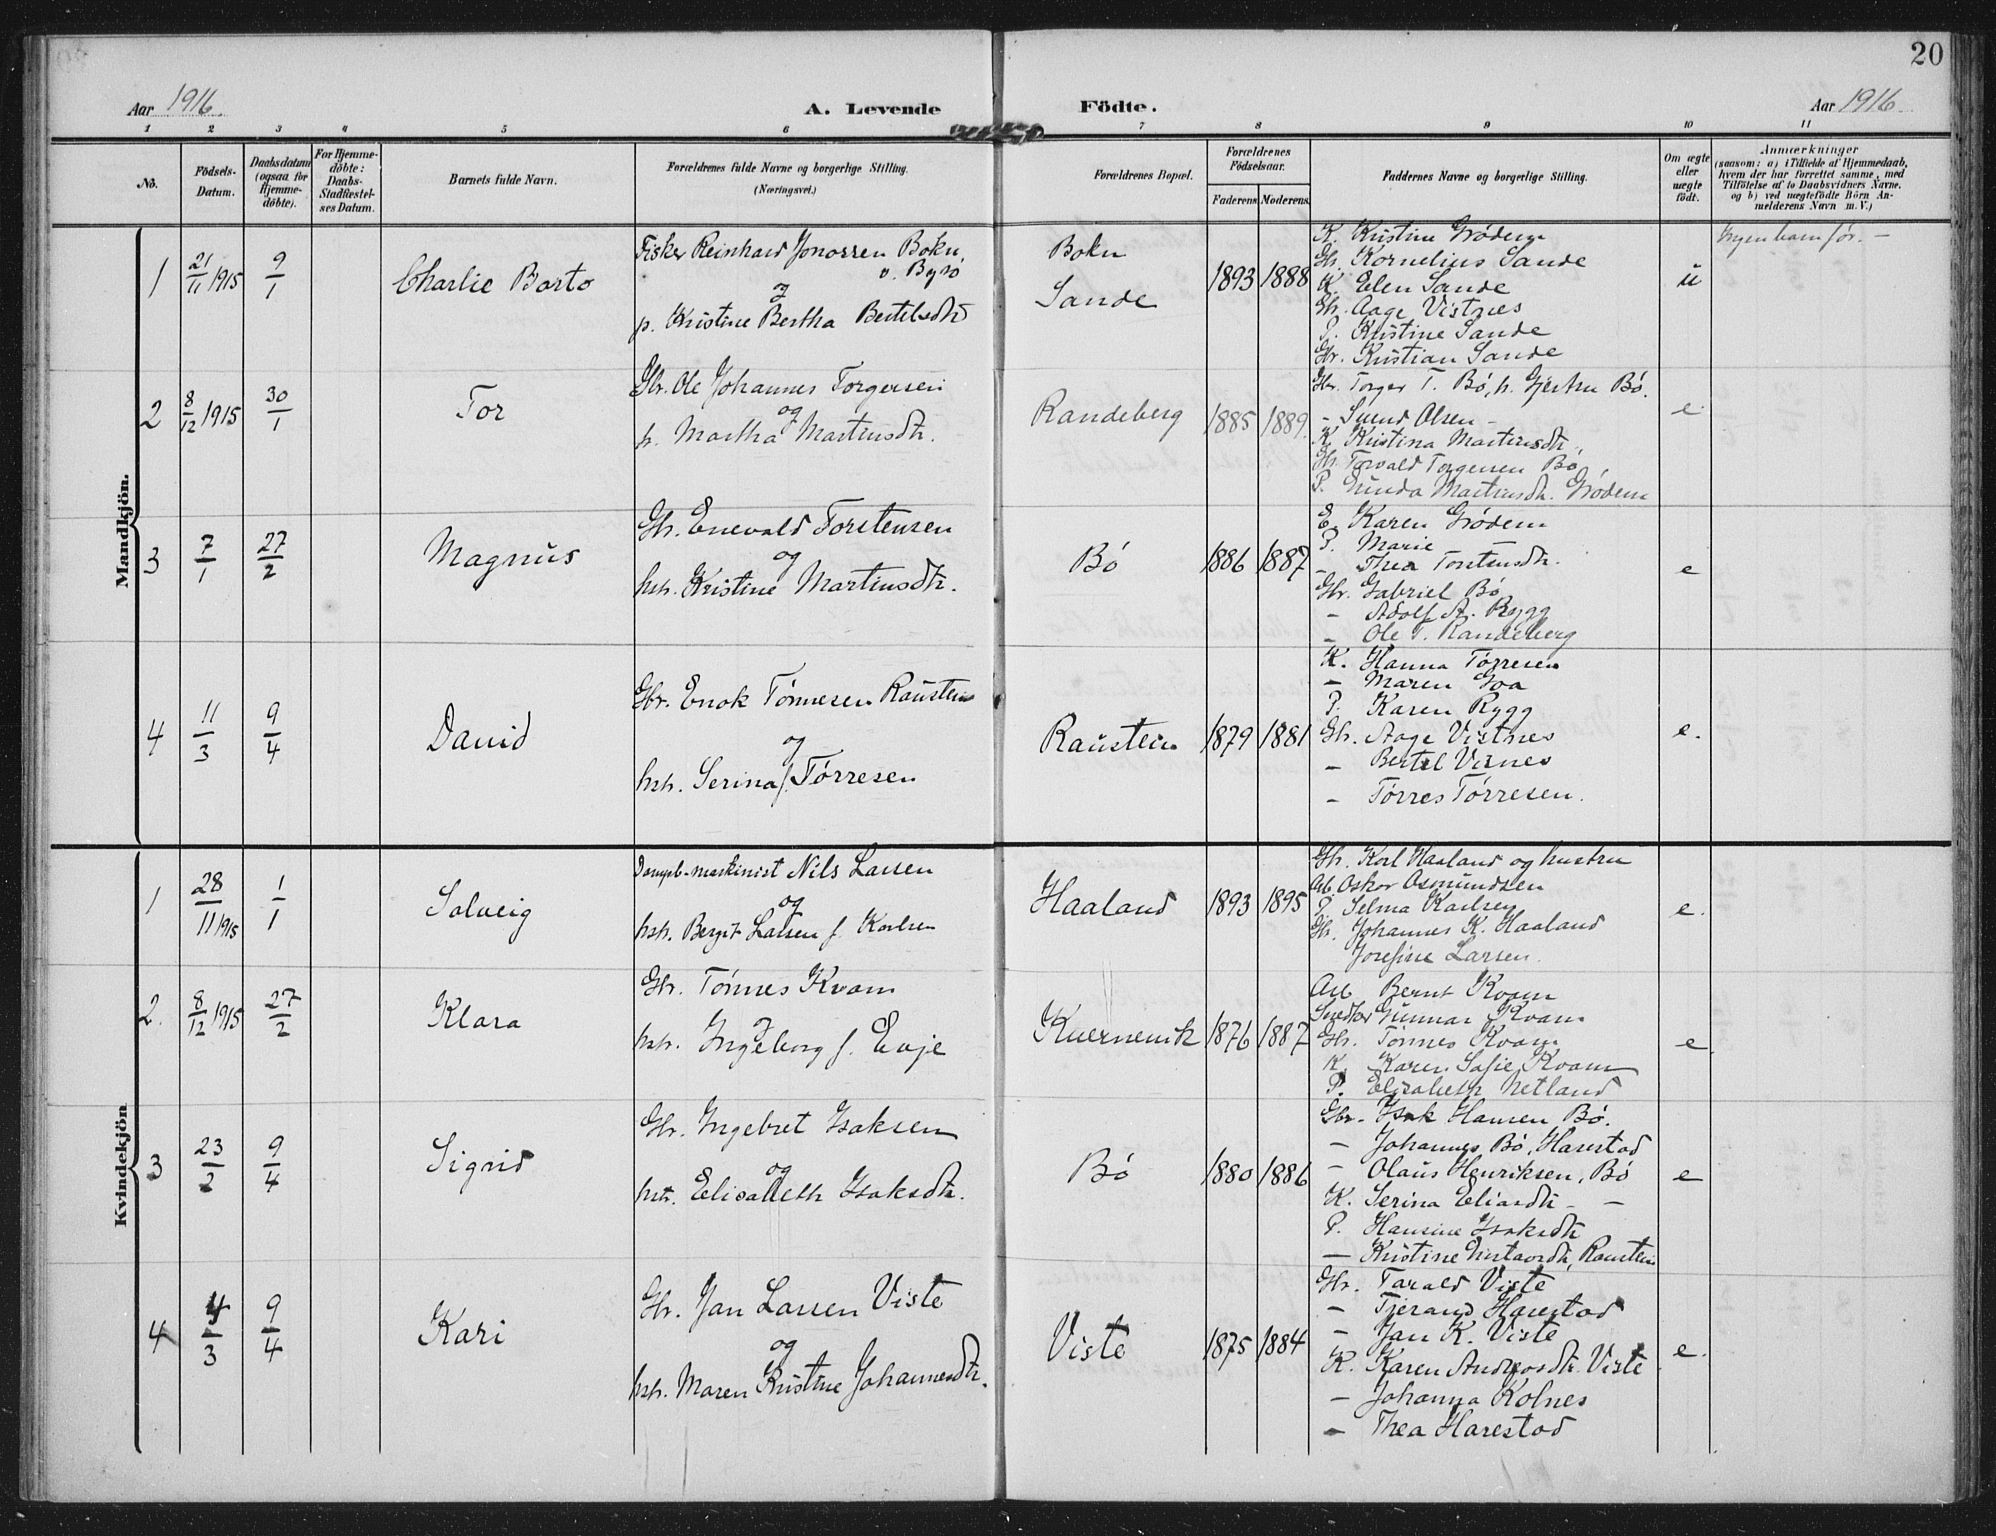 20
Aar 1916. A. Levende Födte. Aar 1916
1 2 3 4 5 6 7 8 9 10 11
No.
Födsels-
Datum.
Daabsdatum
(ogsaa for
Hjemme-
döbte).
For Hjemme-
döbte:
Daabs-
Stadfæstel-
ses Datum.
Barnets fulde Navn.
Forældrenes fulde Navne og borgerlige Stilling.
(Næringsvei.)
Forældrenes Bopæl.
Forældrenes
Födselsaar.
Faderens Moderens.
Faddernes Navne og borgerlige Stilling.
Om ægte
eller
uægte
födt.
Anmærkninger
(saasom: a) i Tilfælde af Hjemmedaab,
hvem der har forrettet samme, med
Tilföielse af to Daabsvidners Navne.
og b) ved uægtefödte Börn An-
melderens Navn m. V.)
Mandkjön.
1 21/11 1915 9/1 Charlie Barto
Fisker Reinhard Jonassen Bokn,
og
p. Kristine Bertha Bertelsdtr
Bokn
Sande
1893 1888
K. Kristine Grødem
Gbr. Kornelius Sande
K. Elen Sande
Gbr. Aage Vistnes
P. Kristine Sande
Gbr. Kristian Sande
u
Ingen barn før. –
2 8/12 1915 30/1 Tor
Gbr. Ole Johannes Torgersen
og
h. Martha Martinsdtr.
Randeberg 1885 1889.
Gbr. Torger T. Bö, h. Gjertru Bö.
– Svend Olsen –
K. Kristina Martinsdtr.
Gbr. Torvald Torgersen Bö
P. Gunda Martinsdtr. Grødem
e
3 7/1 27/2 Magnus
Gbr. Enevald Torstensen
og
hstr. Kristine Martinsdtr.
Bö 1886 1887
E. Karen Grødem
P. Marie –
– Thea Torstensdtr.
Gbr. Gabriel Bö
– Adolf A. Rygg
– Ole T. Randeberg
e
4 11/3 9/4 David
Gbr. Enok Tönnesen Raustein
og
hstr. Serina f. Tørresen
Raustein 1879 1881
K. Hanna Tørresen
– Maren Goa
P. Karen Rygg
Gbr. Aage Vistnes
– Bertel Visnes
– Tørres Tørresen.
e.
Kvindekjön
1 28/11 1915 1/1 Solveig
Dampb-maskinist Nils Larsen
og
hstr. Bergit Larsen f. Karlsen
Haaland 1893 1895
Gbr. Karl Haaland og hustru
Arb. Oskar Osmundsen
P. Selma Karlsen
Gbr. Johannes K. Haaland
Josefine Larsen.
e.
2. 8/12 1915 27/2 Klara
Gbr. Tönnes Kvam
og
hstr. Ingeborg f. Evje
Kvernevik 1876 1887
Arb. Bernt Kvam
Snedker Gunnar Kvam
Gbr. Tönnes Kvam
K. Karen Sofie Kvam
P. Elisabeth Netland
e
3 23/2 9/4 Sigrid
Gbr. Ingebret Isaksen
og
hstr. Elisabeth Isaksdtr.
Bö 1880 1886
Gbr. Isak Hansen Bö.
– Johannes Bö, Harestad
– Olaus Henriksen, Bö
K. Serina Eliasdtr – –
P. Hansine Isaksdtr
– Kristine Gustavsdtr, Raustein
e
4 4/3 9/4 Kari
Gbr. Jan Larsen Viste
og
hstr. Maren Kristine Johannesdtr.
Viste 1875 1884
Gbr. Tarald Viste
– Tjerand Harestad
– Jan K. Viste
K. Karen Andreasdtr. Viste
– Johanna Kolnes
– Thea Harestad
e.